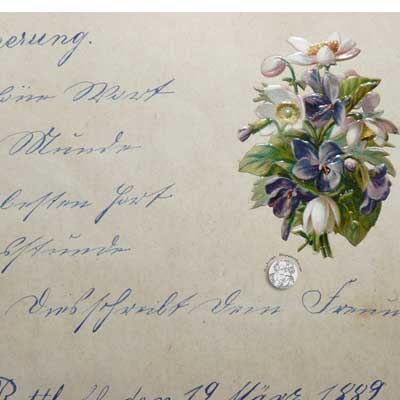 erung.
öne Wort
Munde
besten Hort
sstunde
Dies schreibt dem Freun
den 19 März 1889